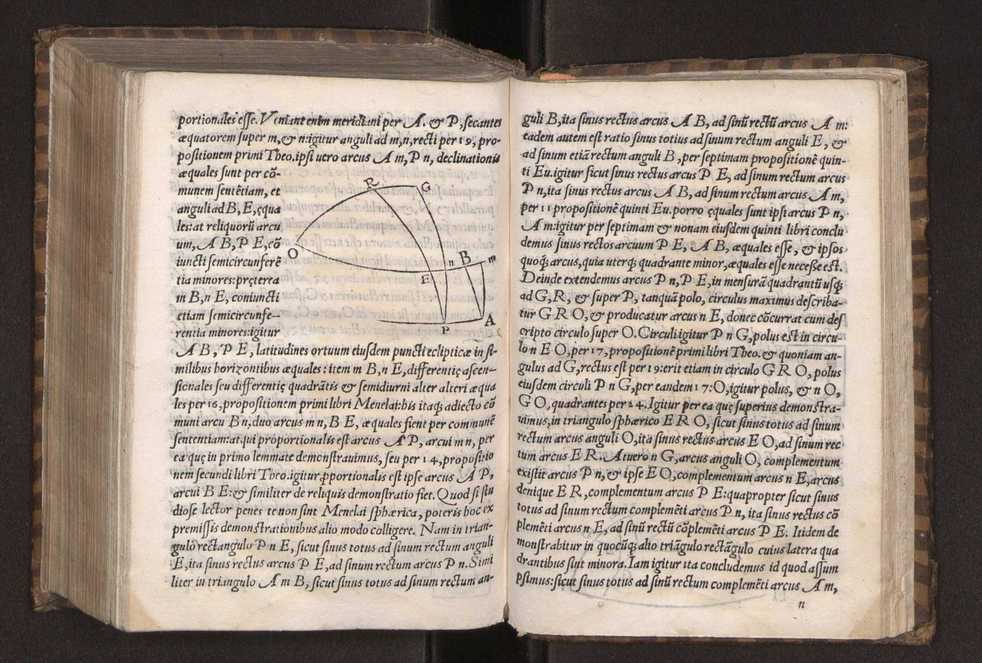 portionales esse. Veniant enim meridiani per A. & P, secantes
æquatorem super m, & n: igitur anguli ad m, n, recti per 19, pro-
positionem primi Theo. ipsi uero arcus A m, P n, declinationis
æquales sunt per cō-
munem sentētiam, et
anguli ad B, E, ęqua
les: at reliquorū arcu
um, A B, P E, cō
iuncti semicircunferē
tia minores: pręterea
m B, n E, coniuncti
etiam semicircunfe-
rentia minores: igitur
R
G
O
n
B
m
E
P
A
A B, P E, latitudines ortuum eiusdem puncti eclipticæ in si-
milibus horizontibus æquales: item m B, n E, differentię ascen-
sionales seu differentię quadrātis & semidiurni alter alteri æqua
les per 16, propositionem primi libri Menelai: his itaq; adiecto cō
muni arcu B n, duo arcus m n, B E, æquales fient per communē
sententiam: at qui proportionalis est arcus A P, arcui m n, per
ea quę in primo lemmate demonstrauimus, seu per 14, propositio
nem secundi libri Theo. igitur proportionalis est ipse arcus A P,
arcui B E: & similiter de reliquis demonstratio fiet. Quod si stu
diose lector penes te non sint Menelai sphærica, poteris hoc ex
premissis demonstrationibus alio modo colligere. Nam in trian-
gulo rectangulo P n E, sicut sinus totus ad sinum rectum anguli
E, ita sinus rectus arcus P E, ad sinum rectum arcus P n. Simi
liter in triangulo A m B, sicut sinus totus ad sinum rectum an-
guli B, ita sinus rectus arcus A B, ad sinū rectū arcus A m:
eadem autem est ratio sinus totius ad sinum rectum anguli E, &
ad sinum etiā rectum anguli B, per septimam propositionē quin-
ti Eu. igitur sicut sinus rectus arcus P E, ad sinum rectum arcus
P n, ita sinus rectus arcus A B, ad sinum rectum arcus A m,
per 11 propositionē quinti Eu. porro ęquales sunt ipsi arcus P n,
A m: igitur per septimam & nonam eiusdem quinti libri conclu
demus sinus rectos arcuum P E, A B, æquales esse, & ipsos
quoq; arcus, quia uterq; quadrante minor, æquales esse necesse est.
Deinde extendemus arcus P n, P E, in mensurā quadrantū usq;
ad G, R, & super P, tanquā polo, circulus maximus describa-
tur G R O, & producatur arcus n E, donec cōcurrat cum des
cripto circulo super O. Circuli igitur P n G, polus est in circu-
lo n E O, per 17, propositionē primi libri Theo. & quoniam an-
gulus ad G, rectus est per 19: erit etiam in circulo G R O, polus
eiusdem circuli P n G, per eandem 17: O, igitur polus, & n O,
G O, quadrantes per 24. Igitur per ea quę superius demonstra-
uimus, in triangulo sphærico E R O, sicut sinus totus ad sinum
rectum arcus anguli O, ita sinus rectus arcus E O, ad sinum rec
tum arcus E R. At uero n G, arcus anguli O, complementum
existit arcus P n, & ipse E O, complementum arcus n E, arcus
denique E R, complementum arcus P E: quapropter sicut sinus
totus ad sinum rectum complemēti arcus P n, ita sinus rectus cō
plemēti arcus n E, ad sinū rectū cōplemēti arcus P E. Itidem de
monstrabitur in quocūq; alio triāgulo rectāgulo cuius latera qua
drantibus sint minora. Iam igitur ita concludemus id quod assum
psimus: sicut sinus totus ad sinū rectum complemēti arcus A m,
n